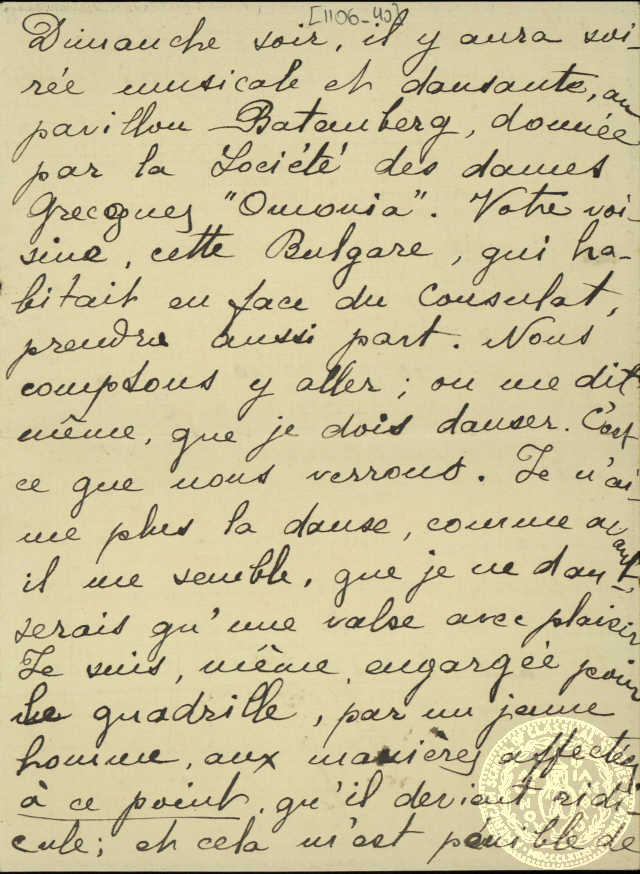 [1106-40]
Dimanche soir, il y aura soi-
rée musicale et dansante, au
pavillon Batemberg, donnée
par la Société des dames
Grecques "Omonia". Votre voi-
sine, cette Bulgare, qui ha-
bitait en face du Consulat,
prendra aussi part. Nous
comptons y aller; on me dit
même, que je dois danser. C'est
ce que nous verrons. Je n'ai-
me plus la danse, comme avant,
il me semble, que je ne dan-
serais qu'une valse avec plaisir
Je suis, même, engargée pour
le quadrille, par un jeune
homme, aux manières affectées
à ce point, qu'il devient ridi-
cule; et cela m'est pénible de